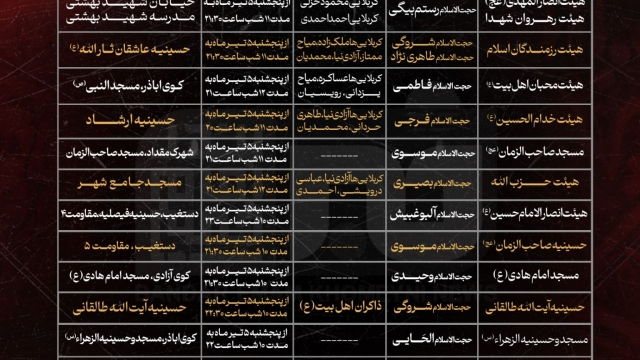 هیئت انصار المهدی (عج)
هیئت رهروان شهدا
حجت الاسلام رستم بیگی
کربلایی محمود خزلی
کربلایی احمد احمدی
از پنجشنبه ۵ تیر ماه به
مدت ۱۱ شب ساعت ۲۱:۳۰
خیابان شهید بهشتی
مدرسه شهید بهشتی
هیئت رزمندگان اسلام
حجت الاسلام شروگی
حجت الاسلام طاهری نژاد
کربلایی ها ملک زاده، میاح
ممتاز، آزادی نیا، محمدیان
از پنجشنبه ۵ تیر ماه به
مدت ۱۱ شب ساعت ۲۱:۳۰
حسینیه عاشقان ثار الله (ع)
هیئت محبان اهل بیت (ع)
حجت الاسلام فاطمی
کربلایی ها عساکره، میاح
یزدانی، رویسیان
از پنجشنبه ۵ تیر ماه به
مدت ۱۱ شب ساعت ۲۱
کوی اباذر، مسجد النبی (ص)
هیئت خدام الحسین (ع)
حجت الاسلام فرجی
کربلایی ها آزادی نیا، طاهری
حردانی، محمدیان
از پنجشنبه ۵ تیر ماه به
مدت ۱۱ شب ساعت ۲۰
حسینیه ارشاد
مسجد صاحب الزمان (عج)
حجت الاسلام موسوی
-------
از پنجشنبه ۵ تیر ماه به
مدت ۱۱ شب ساعت ۲۱
شهرک مقداد، مسجد صاحب الزمان
هیئت حزب الله
حجت الاسلام بصیری
کربلایی ها آزادی نیا، عباسی
درویشی، احمدی
از پنجشنبه ۵ تیر ماه به
مدت ۱۲ شب ساعت ۲۱
مسجد جامع شهر
هیئت انصار الامام حسین (ع)
حجت الاسلام آلبوغبیش
-------
از پنجشنبه ۵ تیر ماه به
مدت ۱۰ شب ساعت ۲۲
دستغیب، حسینیه فیصلیه، مقاومت ۴
حسینیه صاحب الزمان (عج)
حجت الاسلام موسوی
-------
از پنجشنبه ۵ تیر ماه به
مدت ۱۰ شب ساعت ۲۱:۳۰
دستغیب، مقاومت ۵
مسجد امام هادی (ع)
حجت الاسلام وحیدی
-------
از پنجشنبه ۵ تیر ماه به
مدت ۱۰ شب ساعت ۲۱:۳۰
کوی آزادی، مسجد امام هادی (ع)
حسینیه آیت الله طالقانی
حجت الاسلام شروگی
ذاکران اهل بیت (ع)
از پنجشنبه ۵ تیر ماه به
مدت ۱۰ شب ساعت ۲۲:۳۰
حسینیه آیت الله طالقانی
مسجد و حسینیه الزهراء (س)
حجت الاسلام الحَایی
-------
از پنجشنبه ۵ تیر ماه به
مدت ۱۰ شب ساعت ۲۲
کوی اباذر، مسجد و حسینیه الزهراء (س)